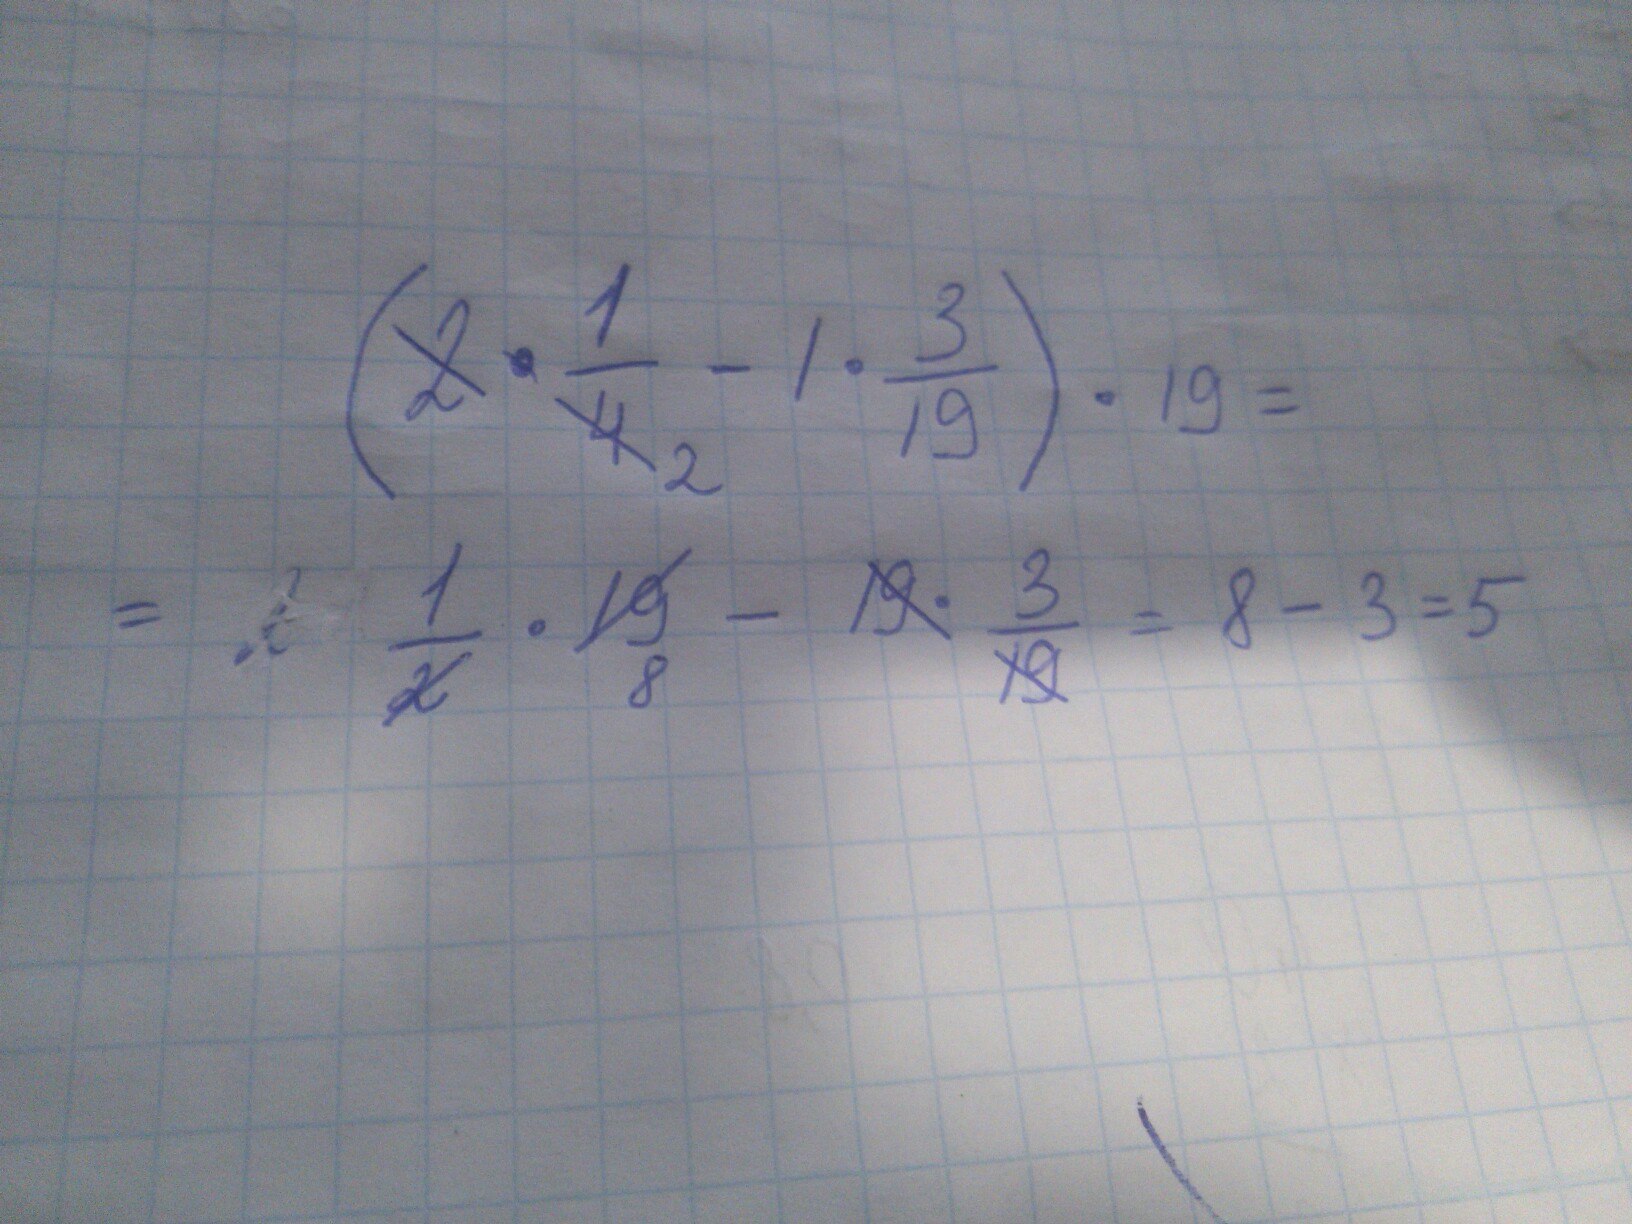 (2 · 1/4 2 - 1 · 3/19) · 19 =
= 1/2 · 19 8 - 19 · 3/19 = 8 - 3 = 5